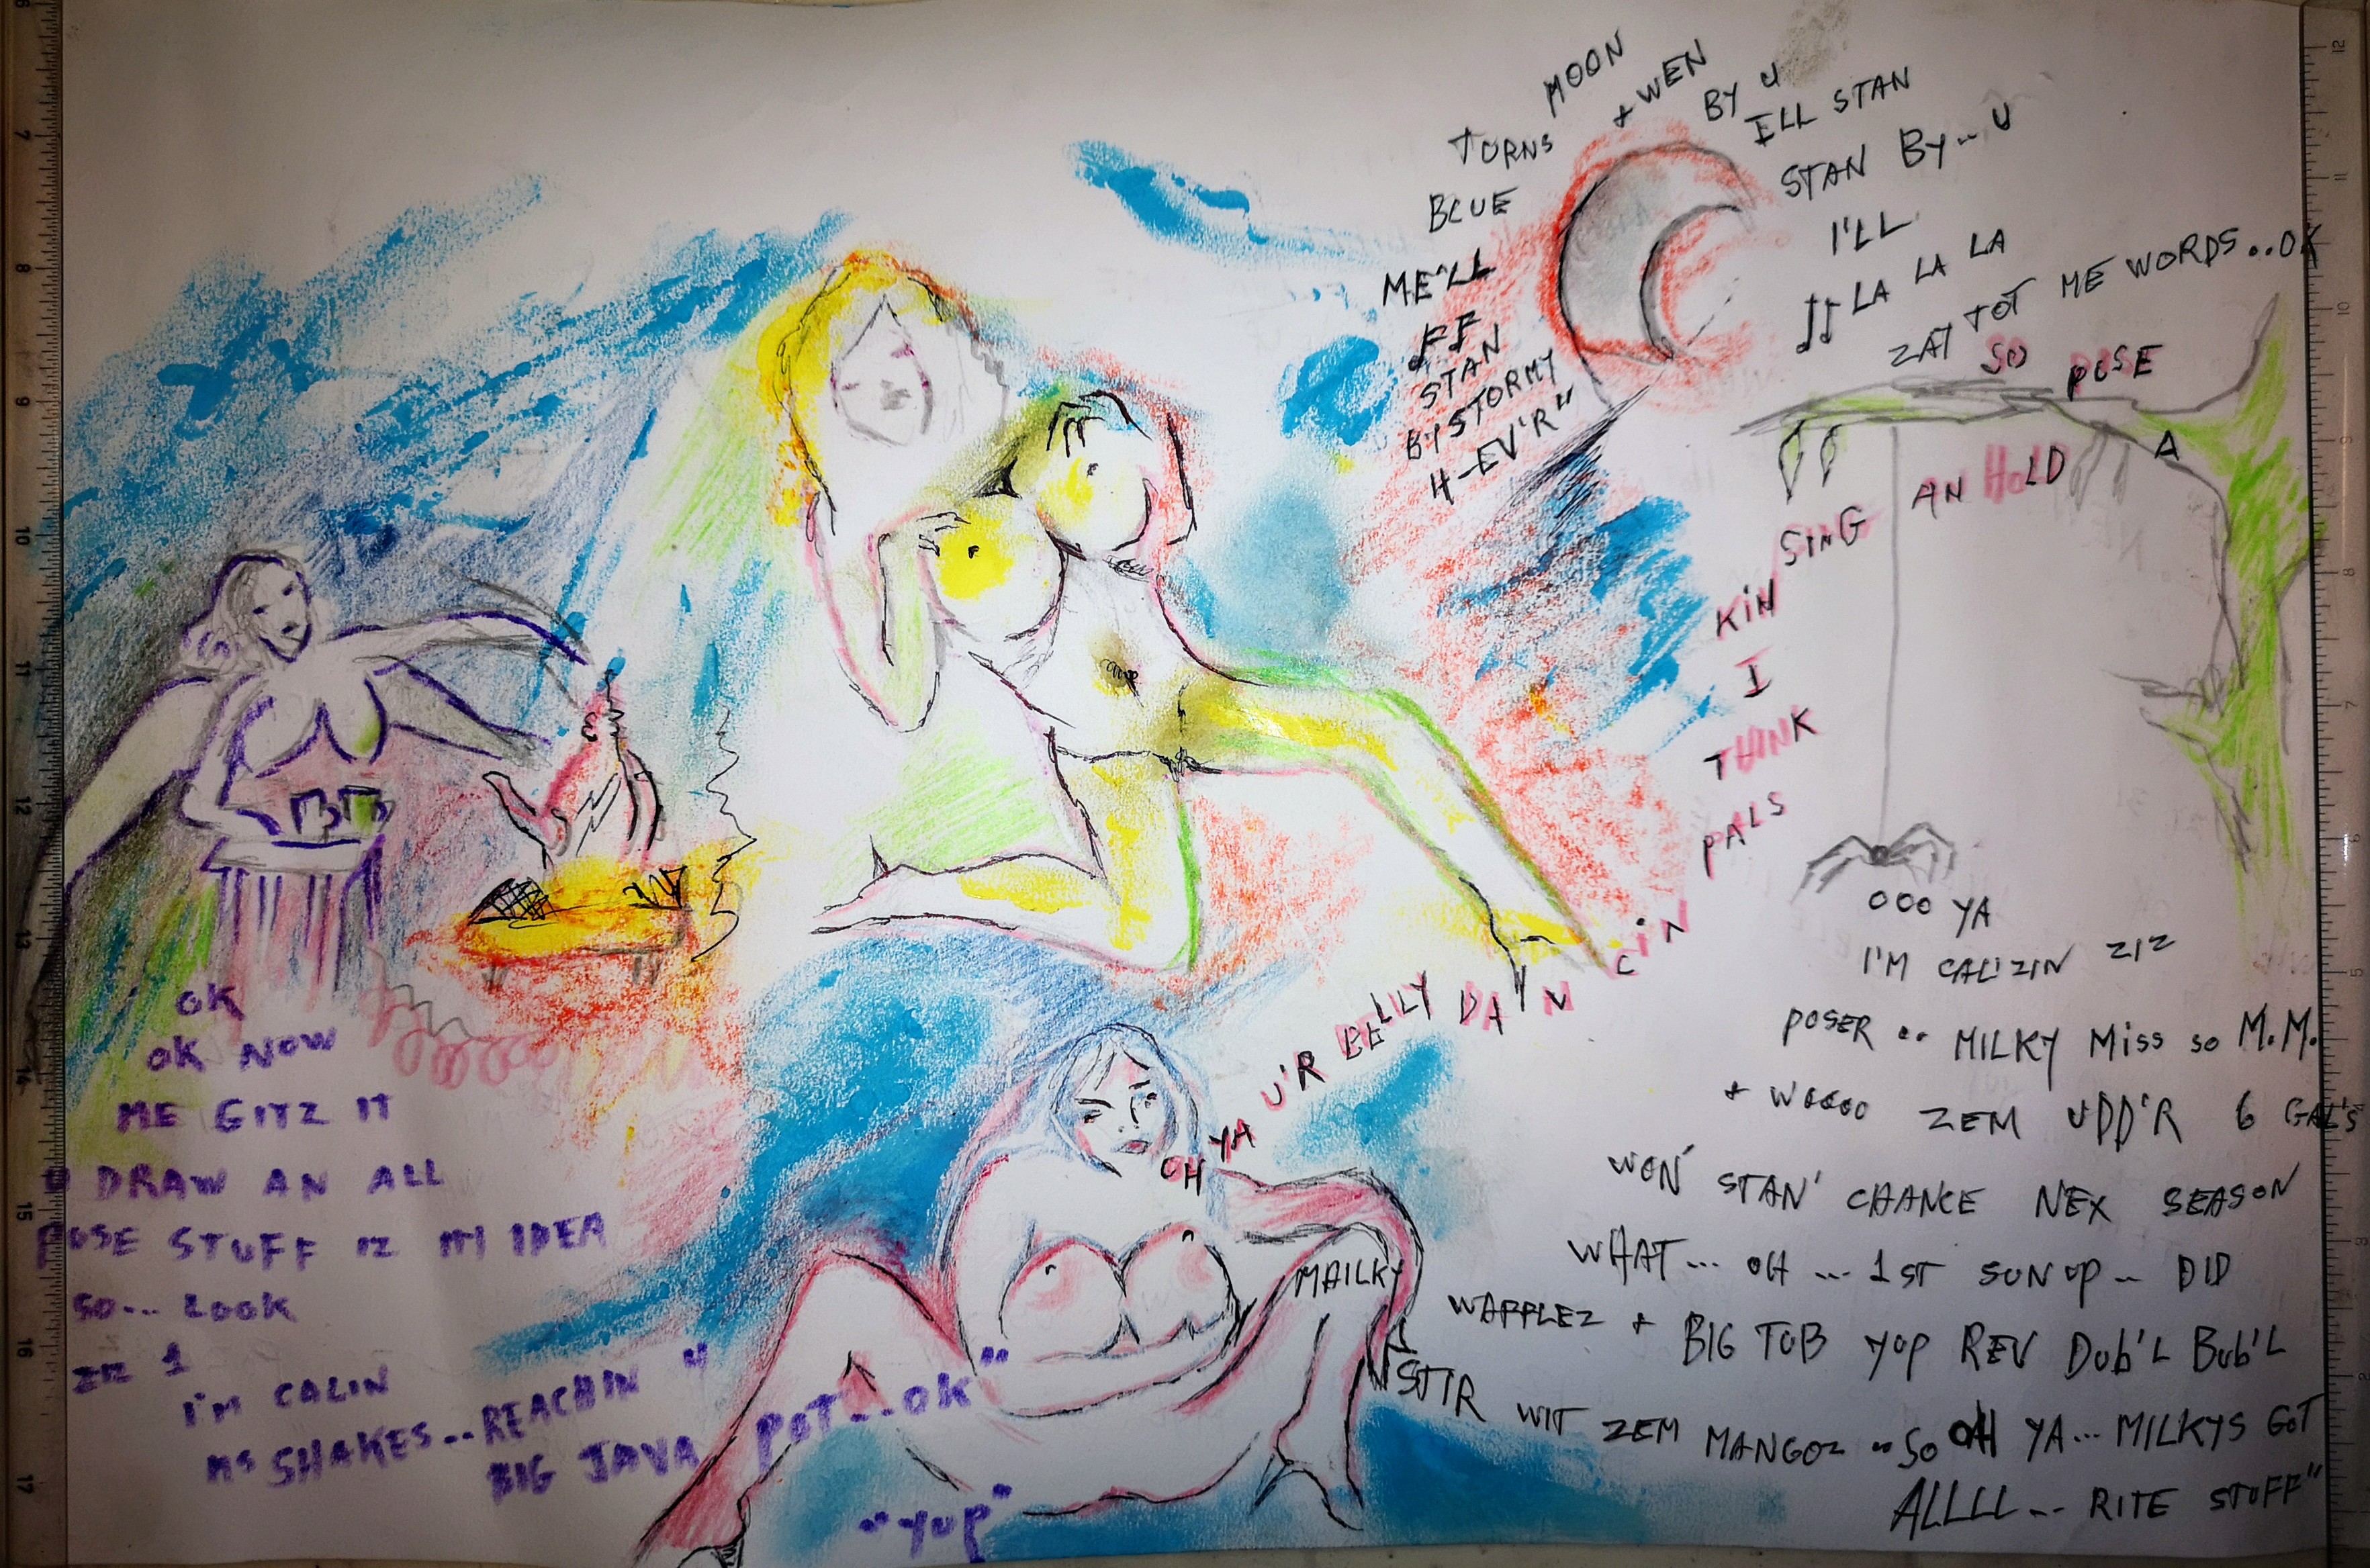 MOON
TURNS + WEN
BLUE
ME'LL
STAN
BI STORMY
H-EV'R"
BY U
ILL STAN
STAN BY... U
I'LL
♫ LA LA LA
ZAT TOT ME WORDS..OK
SO POSE
A
AN HOLD
SING
KIN
I
THINK
PALS
OH YA U'R BELLY DAN CIN
OOO YA
I'M CALIZIN ZIZ
POSER .. MILKY MISS SO M.M.
+ WOOOO ZEM UDD'R 6 GAL'S
WON' STAN' CHANCE NEX SEASON
WHAT... OH ... 1ST SUN UP .. DID
WAFFLEZ + BIG TUB YUP REV DUB'L BUB'L
MAILKY
STIR WIT ZEM MANGOZ .. SO OH YA... MILKYS GOT
ALLLL... RITE STUFF"
OK
OK NOW
ME GITZ IT
DRAW AN ALL
POSE STUFF IZ MI IDEA
SO... LOOK
ZIZ 1
I'M CALIN
MS SHAKES.. REACHIN "
BIG JAVA POT...OK"
"YUP"